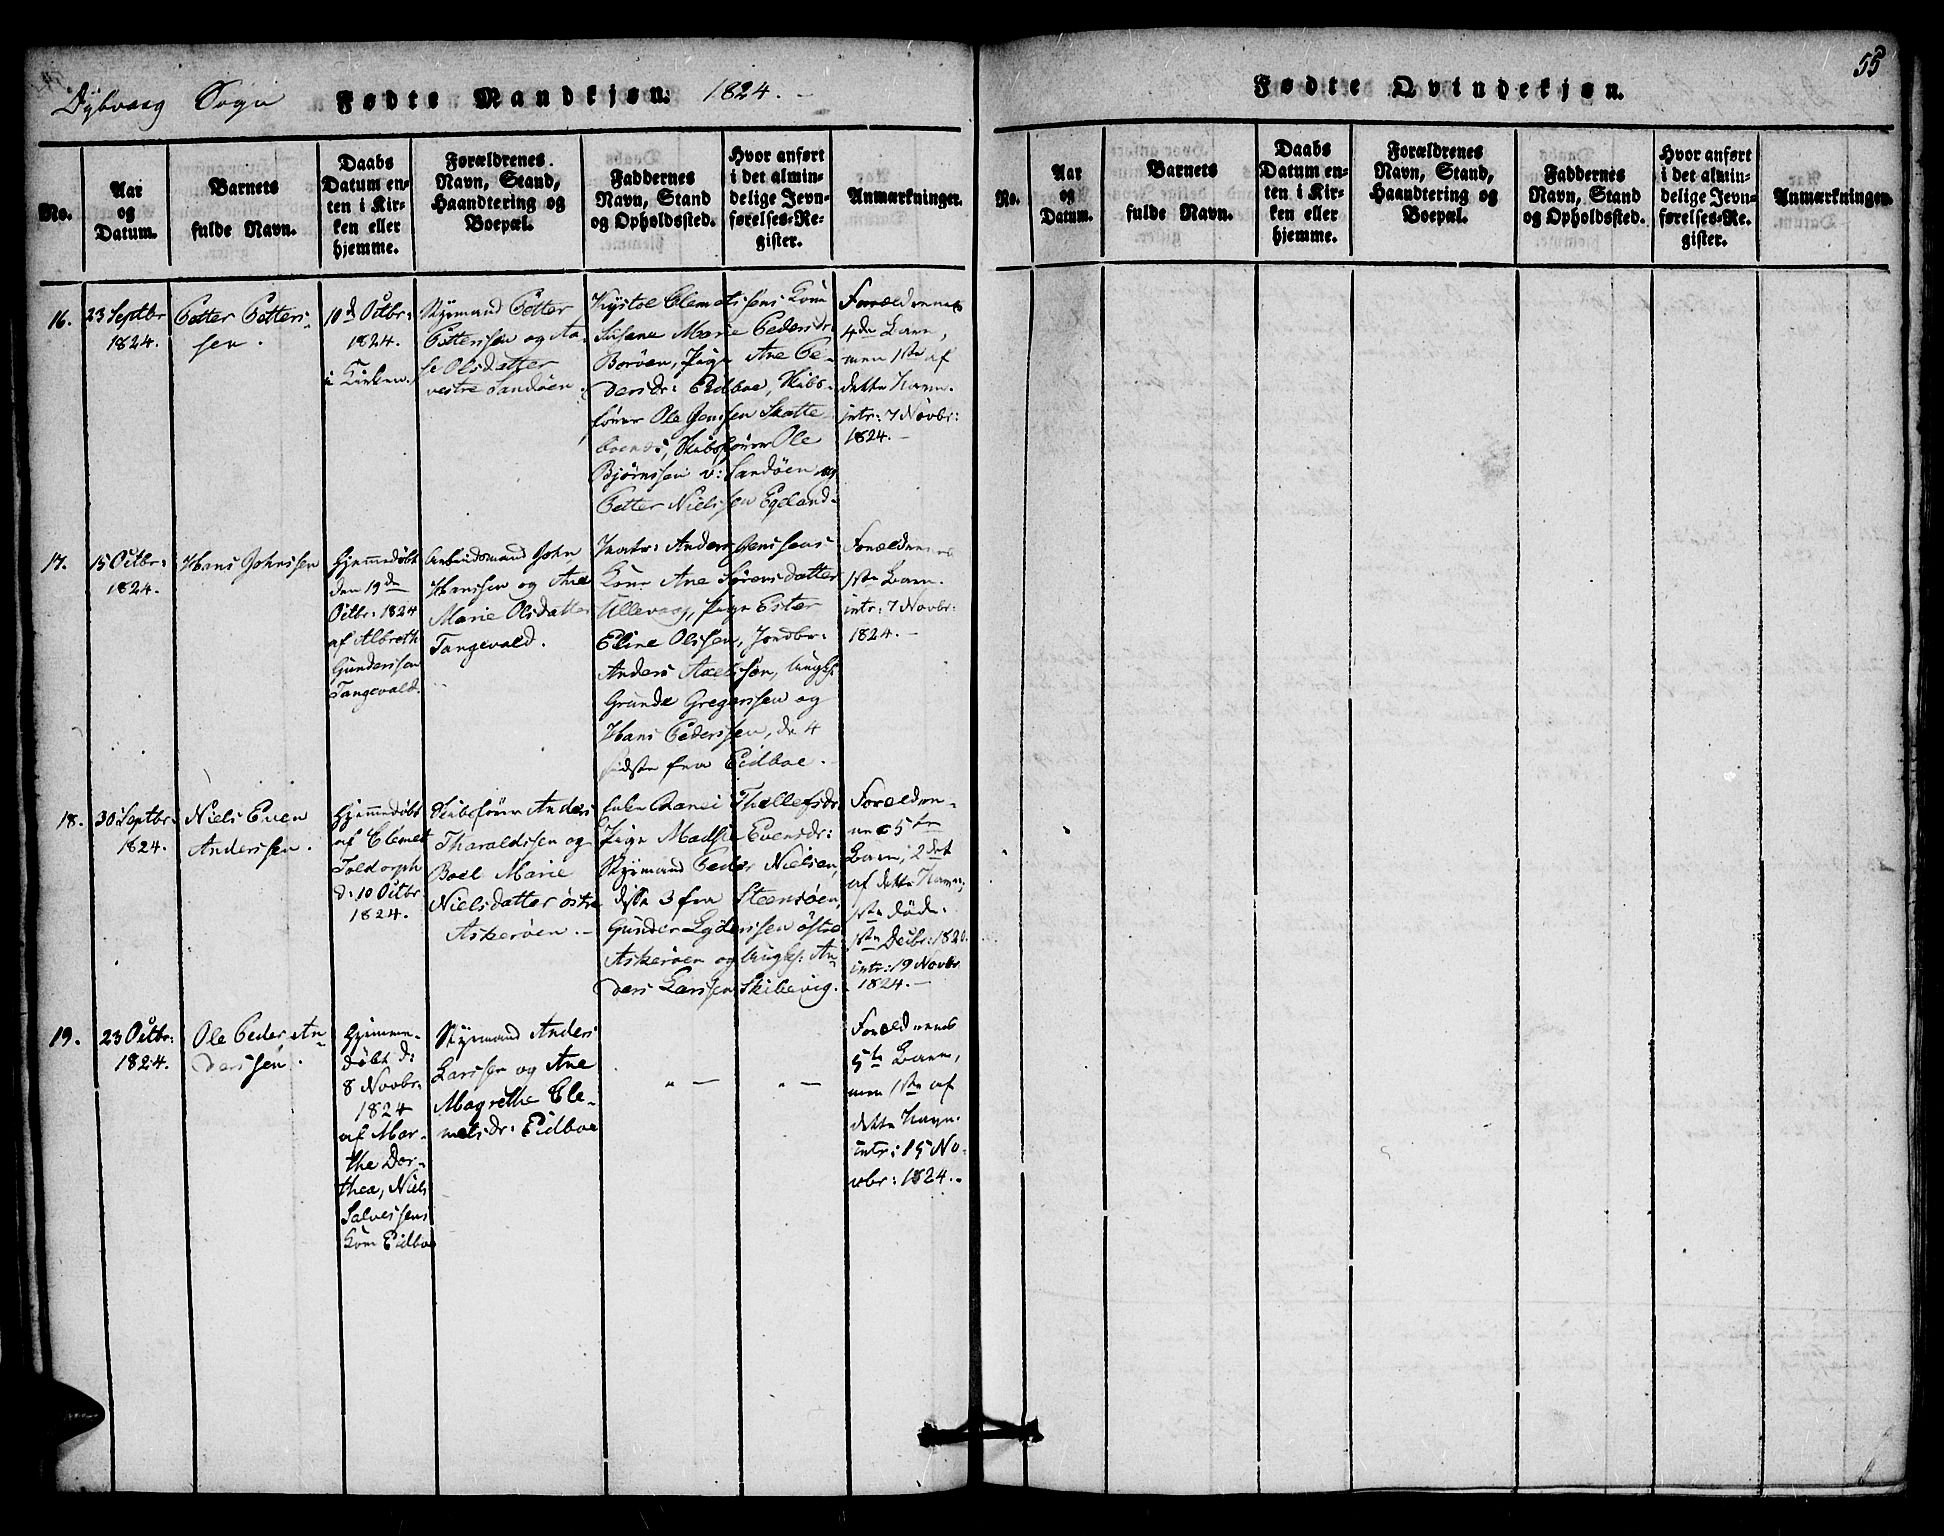 Dybvaag Sogn Fødte Mandkjøn. 1824.
No.
Aar
og
Datum.
Barnets
fulde Navn.
Daabs
Datum en-
ten i Kir-
ken eller
hjemme.
Forældrenes
Navn, Stand,
Haandtering og
Boepæl.
Faddernes
Navn, Stand
og Opholdssted.
Hvor anført
i det almin-
delige Jevn-
førelses-Re-
gister.
Anmærkninger.
16.
23 Septbr
1824.
Petter Petters-
sen.
10d Octbr:
1824.
i Kirken.
Styrmand Petter
Petterssen og Aa-
se Olsdatter
vestre Sandöen.
Clemetsens Kone
Susane Marie Pedersdr
Boröen, Pige Ane Pe-
dersdr: Eidboe, Skibs-
förer Ole Jenssen Skatte-
Skibsförer Ole
Bjørnssen v: Sandöen og
Petter Nielssen Egeland.
Forældrenes
4de Barn,
men 1ste af
dette Navn.
intr: 7 Novbr:
1824.
17.
15 Octbr:
1824.
Hans Johnssen
Hjemmedøbt
den 19de
Octbr: 1824
af Albreth
Gunderssen
Tangevald.
Arbeidsmand John
Hanssen og Ane
Marie Olsdatter
Tangevald.
Anders Jenssens
Kone Ane Sörensdatter
Ullevaag, Pige Ester
Eline Olssen, Jordbr:
Anders Axelssen, Ungk:
Grunde Gregerssen og
Hans Pederssen, de 4
sidste fra Eidboe.
Forældrenes
1ste Barn.
intr: 7 Novbr:
1824.
18.
30 Septbr:
1824.
Niels Even
Anderssen.
Hjemmedøbt
af Clemet
Toldorph
d: 10 Octbr
1824.
Skibsförer Anders
Tharaldssen og
Boel Marie
Nielsdatter östre
Askeröen.
Enke Thollefsdr
Pige Madsie Evensdr:
Styrmand Peder Nielsen,
disse 3 fra Steensöen,
Gunder Lyderssen östre
Askeröen og Ungk: An-
ders Larssen Skibevig.
Forældre-
nes 5te
Barn, 2det
af dette Navn,
1ste døde
1ste Decbr: 1820.
intr: 19 Novbr
1824.
19.
23 Octbr:
1824.
Ole Peder An-
derssen.
Hjemme-
døbt d:
8 Novbr:
1824
af Mar-
the Dor-
thea, Niels
Salvessens
Kone Eidboe
Styrmand Anders
Larssen og Ane
Magrethe Cle-
metsdr: Eidboe
" — " —
Forældrenes
5te Barn,
men 1ste af
dette Navn.
intr: 15 No-
vbr: 1824.
55
Fødte Qvindekjøn.
No.
Aar
og
Datum.
Barnets
fulde Navn.
Daabs
Datum en-
ten i Kir-
ken eller
hjemme.
Forældrenes
Navn, Stand,
Haandtering og
Boepæl.
Faddernes
Navn, Stand
og Opholdssted.
Hvor anført
i det almin-
delige Jevn-
førelses-Re-
gister.
Anmærkninger.